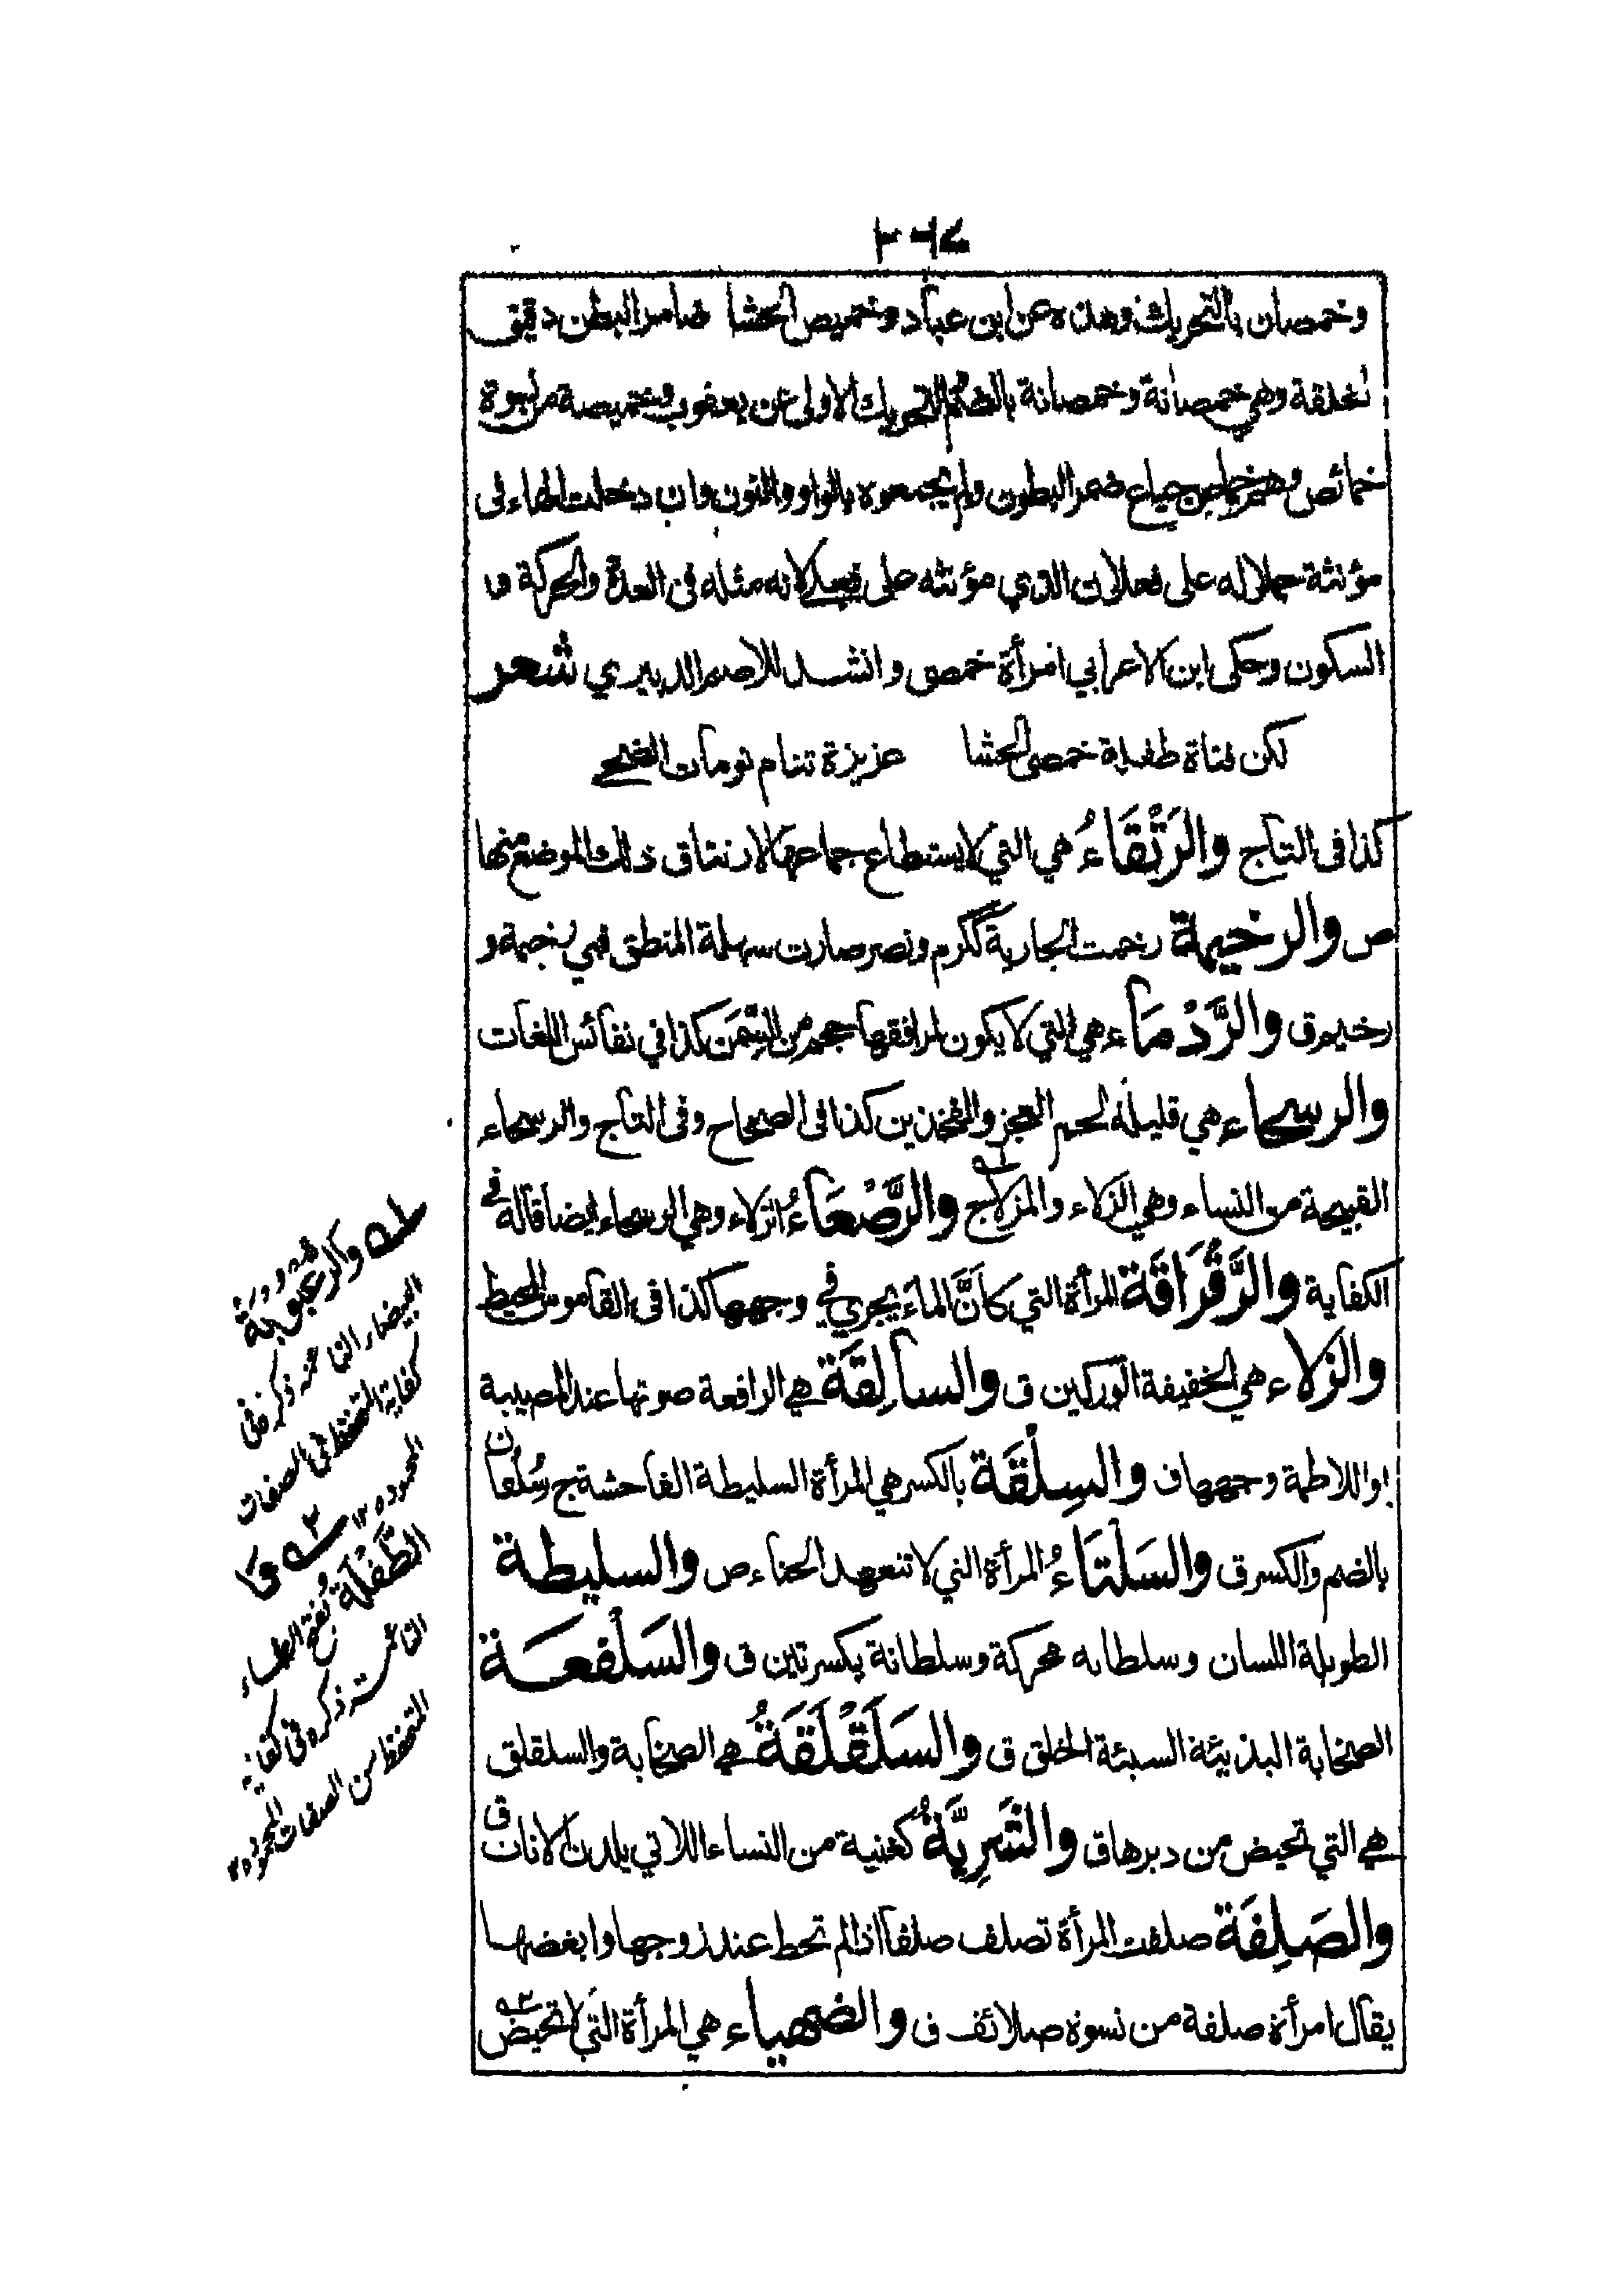 وخمصان بالتحريك وهذه عن ابن عباد وخميص الحشا ضامر البطن دقيق
لخلقة وهي خمصانة وخمصانة بالضم التحريك الاولى عن يعقوب وخميصة من نسوة
خمائص وهم خماص جياع ضمر البطون ولم يجمعوه بالواو والنون وان دخلت الهاء فى
مؤنثة حملاله على فعلان الذي مؤنثه على فعلى لانه مثله فى العدة والحركة و
السكون وحكى ابن الاعرابي امرأة خمصى وانشد للاصم الدبيري شعر
لكن فتاة طفلة خمصى الحشا عزيزة تنام نومات الضحى
كذا فى التاج والرَتْقَاءُ هي التي لا يستطاع جماعها لارتتاق ذلك الموضع منها
ص والرخيمة رخمت الجارية ككرم ونصر صارت سهلة المنطق فهي رخيمة و
رخيم ق والرَّدْمَاء هي التي لا يكون لمرافقها حجم من السِّمَن كذا في نفائس اللغات
والرسحاء هي قليلة لحم العجز والفخذين كذا فى الصحاح وفى التاج والرسحاء
القبيحة من النساء وهي الزلاء والمزلاج والرَّصْعَاءُ الزلاء وهي الرسحاء ايضا قاله في
الكفاية والرَّقْرَاقَة المرأة التي كَانَّ الماءَ يجري في وجهها كذا فى القاموس المحيط
والزلاء هي الخفيفة الوركين ق والسالِقَة هي الرافعة صوتها عند المصيبة
او اللاطمة وجهها ق والسِلْقَة بالكسر هي المرأة السليطة الفاحشة ج سُلْقان
بالضم والكسر ق والسَلْتَاءُ المرأة التي لا تتعهد الحناء ص والسليطة
الطويلة اللسان وسلطانه محركة وسلطانة بكسرتين ق والسَلْفعَة
الصخابة البذيئة السيئة الخلق ق والسَلَقْلَقَةُ هي الصخابة والسلقلق
هي التي تحيض من دبرها ق والشَرِيَّةُ كغنية من النساء اللاتي يلدن الاناث ق
والصَلِفَة صلفت المرأة تصلف صلفا اذا لم تحظ عند زوجها وابغضها
يقال امرأة صلفة من نسوة صلائف ق والضهياء هي المرأة التي لا تحيض
والرعبوبة
البيضاء الناعمة ذكر فى
كفاية المتحفظ فى الصفات
المحموده ١٢
الطَّفْلَة بفتح الطاء
الناعمة ذكره فى كفاية
المتحفظ من الصفات المحموده